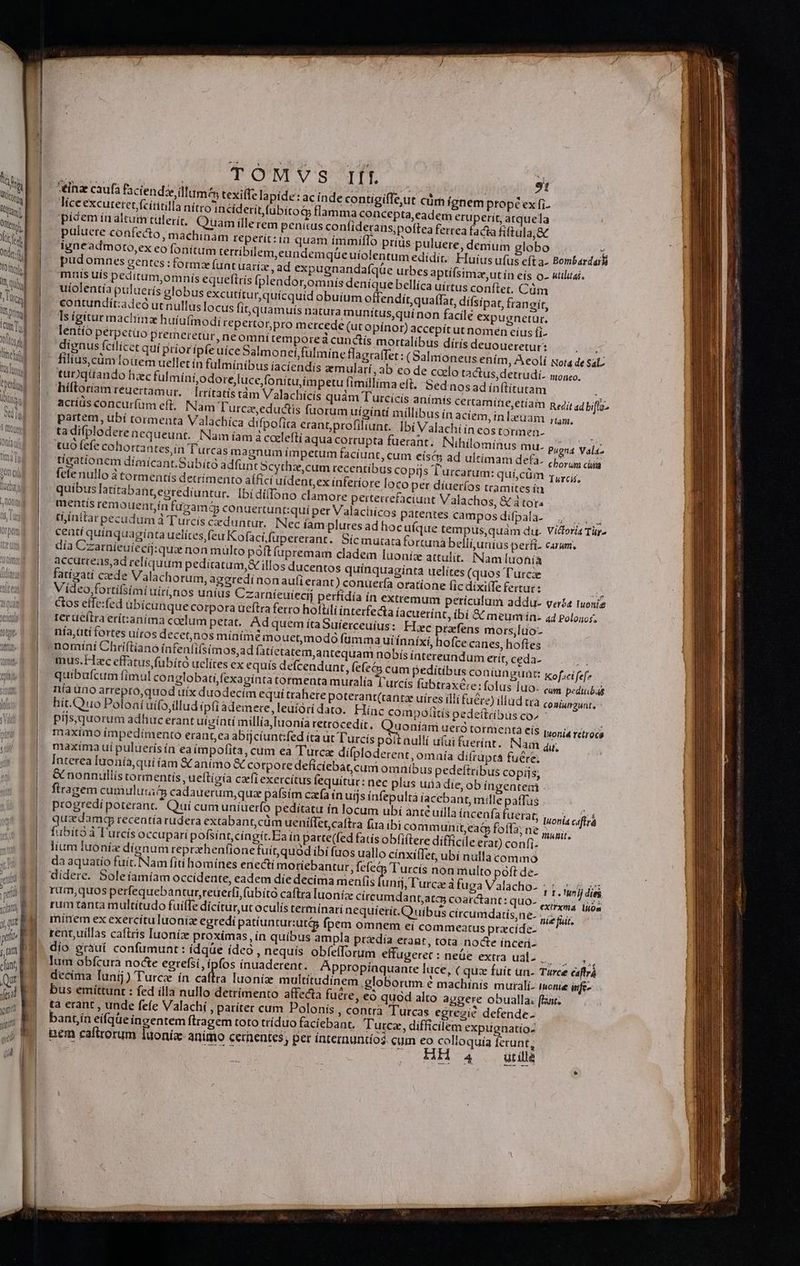 TOMVS III. 91
tinæ causa faciendæ, illumq́; texisse lapide: ac inde contigisse, ut cùm ignem propè ex si-
lice excuteret, scintilla nitro inciderit, subitoq́; flamma concepta, eadem eruperit, atque la
pidem in altum tulerit. Quam ille rem penitus considerans, postea ferrea facta fistula, &
puluere confecto, machinam reperit: in quam immisso priùs puluere, demum globo
igne admoto, ex eo sonitum terribilem, eundemque uiolentum edidit. Huius usus est a- Bombardarū
pud omnes gentes: formæ sunt uariæ, ad expugnandasque urbes aptissimæ, ut in eis o- utilitas.
mnis uis peditum, omnis equestris splendor, omnis denique bellica uirtus constet. Cùm
uiolentia pulueris globus excutitur, quicquid obuium offendit, quassat, dissipat, frangit,
contundit: adeò ut nullus locus sit, quamuis natura munitus, qui non facilè expugnetur.
Is igitur machinæ huiusmodi repertor, pro mercede (ut opinor) accepit ut nomen eius si-
lentio perpetuo premeretur, ne omni tempore à cunctis mortalibus diris deuoueretur:
dignus scilicet qui prior ipse uice Salmonei, fulmine flagrasset: (Salmoneus enim, Aeoli Nota de Sal-
filius, cùm Iouem uellet in fulminibus iaciendis æmulari, ab eo de cœlo tactus, detrudi- moneo.
tur) quando hæc fulmini, odore, luce, sonitu, impetu simillima est. Sed nos ad institutam
historiam reuertamur. Irritatis tàm Valachicis quàm Turcicis animis certamine, etiam Redit ad histo-
acriùs concursum est. Nam Turcæ, eductis suorum uiginti millibus in aciem, in læuam riam.
partem, ubi tormenta Valachica disposita erant, prosiliunt. Ibi Valachi in eos tormen-
ta displodere nequeunt. Nam iam à cœlesti aqua corrupta fuerant. Nihilominus mu- Pugna Vala-
tuò sese cohortantes, in Turcas magnum impetum faciunt, cum eisq́; ad ultimam defa- chorum cum
tigationem dimicant. Subitò adsunt Scythæ, cum recentibus copijs Turcarum: qui, cùm Turcis.
sese nullo à tormentis detrimento affici uident, ex inferiore loco per diuersos tramites in
quibus latitabant, egrediuntur. Ibi dissono clamore perterrefaciunt Valachos, & à tor-
mentis remouent, in fugamq́; conuertunt: qui per Valachicos patentes campos dispala-
ti, in instar pecudum à Turcis cæduntur. Nec iam plures ad hoc usque tempus, quàm du- Victoria Tur-
centi quinquaginta uelites, seu Kosaci, supererant. Sic mutata fortuna belli, unius perfi- carum.
dia Czarnieuiecij: quæ non multo pòst supremam cladem Iuoniæ attulit. Nam Iuonia
accurrens, ad reliquum peditatum, & illos ducentos quinquaginta uelites (quos Turcæ
fatigati cæde Valachorum, aggredi non ausi erant) conuersa oratione sic dixisse fertur:
Video, fortissimi uiri, nos unius Czarnieuiecij perfidia in extremum periculum addu- Verba Iuoniæ
ctos esse: sed ubicunque corpora uestra ferro hostili interfecta iacuerint, ibi & meum in- ad Polonos.
ter uestra erit: anima cœlum petat. Ad quem ita Suierceuius: Hæc præsens mors, Iuo-
nia, uti fortes uiros decet, nos minimè mouet, modò summa ui innixi, hosce canes, hostes
nomini Christiano infensissimos, ad satietatem, antequam nobis intereundum erit, ceda-
mus. Hæc effatus, subitò uelites ex equis descendunt, seseq́; cum peditibus coniungunt: Kosaci sese
quibuscum simul conglobati, sexaginta tormenta muralia Turcis subtraxère: solus Iuo- cum peditibus
nia uno arrepto, quod uix duodecim equi trahere poterant (tantæ uires illi fuère) illud tra coniungunt.
hit. Quo Poloni uiso, illud ipsi ademere, leuiori dato. Hinc compositis pedestribus co-
pijs, quorum adhuc erant uiginti millia, Iuonia retrocedit. Quoniam uerò tormenta eis Iuonia retroce
maximo impedimento erant, ea abijciunt: sed ita ut Turcis pòst nulli usui fuerint. Nam dit.
maxima ui pulueris in ea imposita, cum ea Turcæ disploderent, omnia disrupta fuère.
Interea Iuonia, qui iam & animo & corpore deficiebat, cum omnibus pedestribus copijs,
& nonnullis tormentis, uestigia cæsi exercitus sequitur: nec plus una die, ob ingentem
stragem cumulumq́; cadauerum, quæ passim cæsa in uijs insepulta iacebant, mille passus
progredi poterant. Qui cum uniuerso peditatu in locum ubi antè uilla incensa fuerat, Iuonia castra
quædamq́; recentia rudera extabant, cùm uenisset, castra sua ibi communit, eaq́; fossa, ne munit.
subitò à Turcis occupari possint, cingit. Ea in parte (sed fatis obsistere difficile erat) consi-
lium Iuoniæ dignum reprehensione fuit, quòd ibi suos uallo cinxisset, ubi nulla commo
da aquatio fuit. Nam siti homines enecti moriebantur, seseq́; Turcis non multo pòst de-
didere. Sole iam iam occidente, eadem die decima mensis Iunij, Turcæ à fuga Valacho-
rum, quos persequebantur, reuersi, subitò castra Iuoniæ circumdant, atq́; coarctant: quo- 11. Iunij dies
rum tanta multitudo fuisse dicitur, ut oculis terminari nequierit. Quibus circumdatis, ne- extrema Iuo-
minem ex exercitu Iuoniæ egredi patiuntur: utq́; spem omnem ei commeatus præcide- niæ fuit.
rent, uillas castris Iuoniæ proximas, in quibus ampla prædia erant, tota nocte incen-
dio graui consumunt: idque ideò, nequis obsessorum effugeret: neue extra ual-
lum obscura nocte egressi, ipsos inuaderent. Appropinquante luce, (quæ fuit un- Turcæ castra
decima Iunij) Turcæ in castra Iuoniæ multitudinem globorum è machinis murali- Iuoniæ infe-
bus emittunt: sed illa nullo detrimento affecta fuère, eò quòd alto aggere obualla- stant.
ta erant, unde sese Valachi, pariter cum Polonis, contrà Turcas egregiè defende-
bant, in eisque ingentem stragem toto triduo faciebant. Turcæ, difficilem expugnatio-
nem castrorum Iuoniæ animo cernentes, per internuntios cum eo colloquia serunt,
HH 4 utille